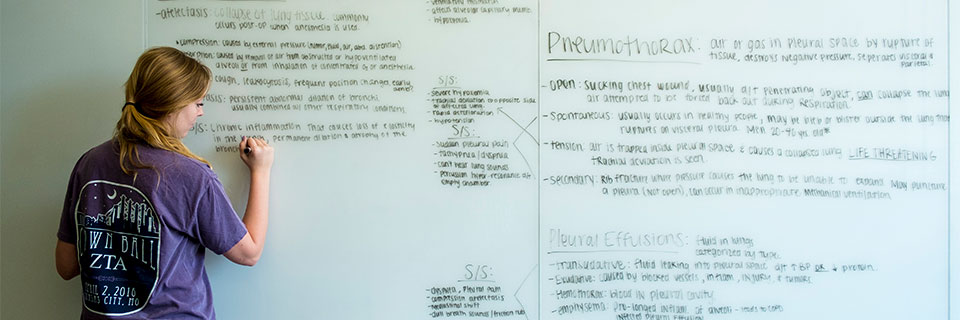 -atelectasis: collapse of lung tissue. commonly
occurs post-op when anesthesia is used.
compression: caused by external pressure
alveoli or from inhalation of concentrated O₂ or anesthesia.
cough, leukocytosis, frequent position changes, early
persistent abnormal dilation of bronchi.
usually combined w/ other respiratory conditions
chronic inflammation that causes loss of elasticity
in the permanent dilation &
· affects alveolar capillary
· hypoxemia
S/S:
- severe hypoxemia
- tracheal deviation to opposite side
of affected lung
- rapid deterioration
- hypotension
S/S:
- sudden pleural pain
- tachypnea/dyspnea
- can't hear lung sounds
- percussion hyper-resonance
empty chamber
S/S:
- dyspnea, pleural pain
- compression atelectasis
- mediastinal shift
- dull breath sounds/friction rub
Pneumothorax: air or gas in pleural space by rupture of
tissue, destroys negative pressure, seperates visceral &
parietal.
- open: sucking chest wound, usually d/t penetrating object, can collapse the lung
air attempted to be forced back air during respiration.
- spontaneous: usually occurs in healthy people, may be bleb or blister outside the lung that
ruptures on visceral pleura. Men 20-40 yrs old*
- tension: air is trapped inside pleural space & causes a collapsed lung. LIFE THREATENING
tracheal deviation is seen.
- secondary: Rib fracture where pressure causes the lung to be unable to expand. May puncture
a pleura (not open), can occur in inappropriate mechanical ventilation.
Pleural Effusions: fluid in lungs
categorized by type.
- Transudative: fluid leaking into pleural space d/t ↑BP or ↓ protein.
- Exudative: caused by blocked vessels, inflam, injury, & tumors.
- Hemothorax: blood in pleural cavity
- emphysema: pro-longed inflam. of alveoli - leads to COPD
infected pleural effusion
OWN BALL
ZTA
APRIL 2, 2016
KANSAS CITY, MO